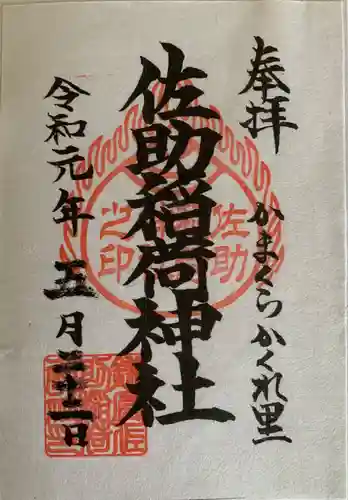 奉拝
かまくらかくれ里
佐助稲荷神社
令和元年五月二十二日
佐助
之印